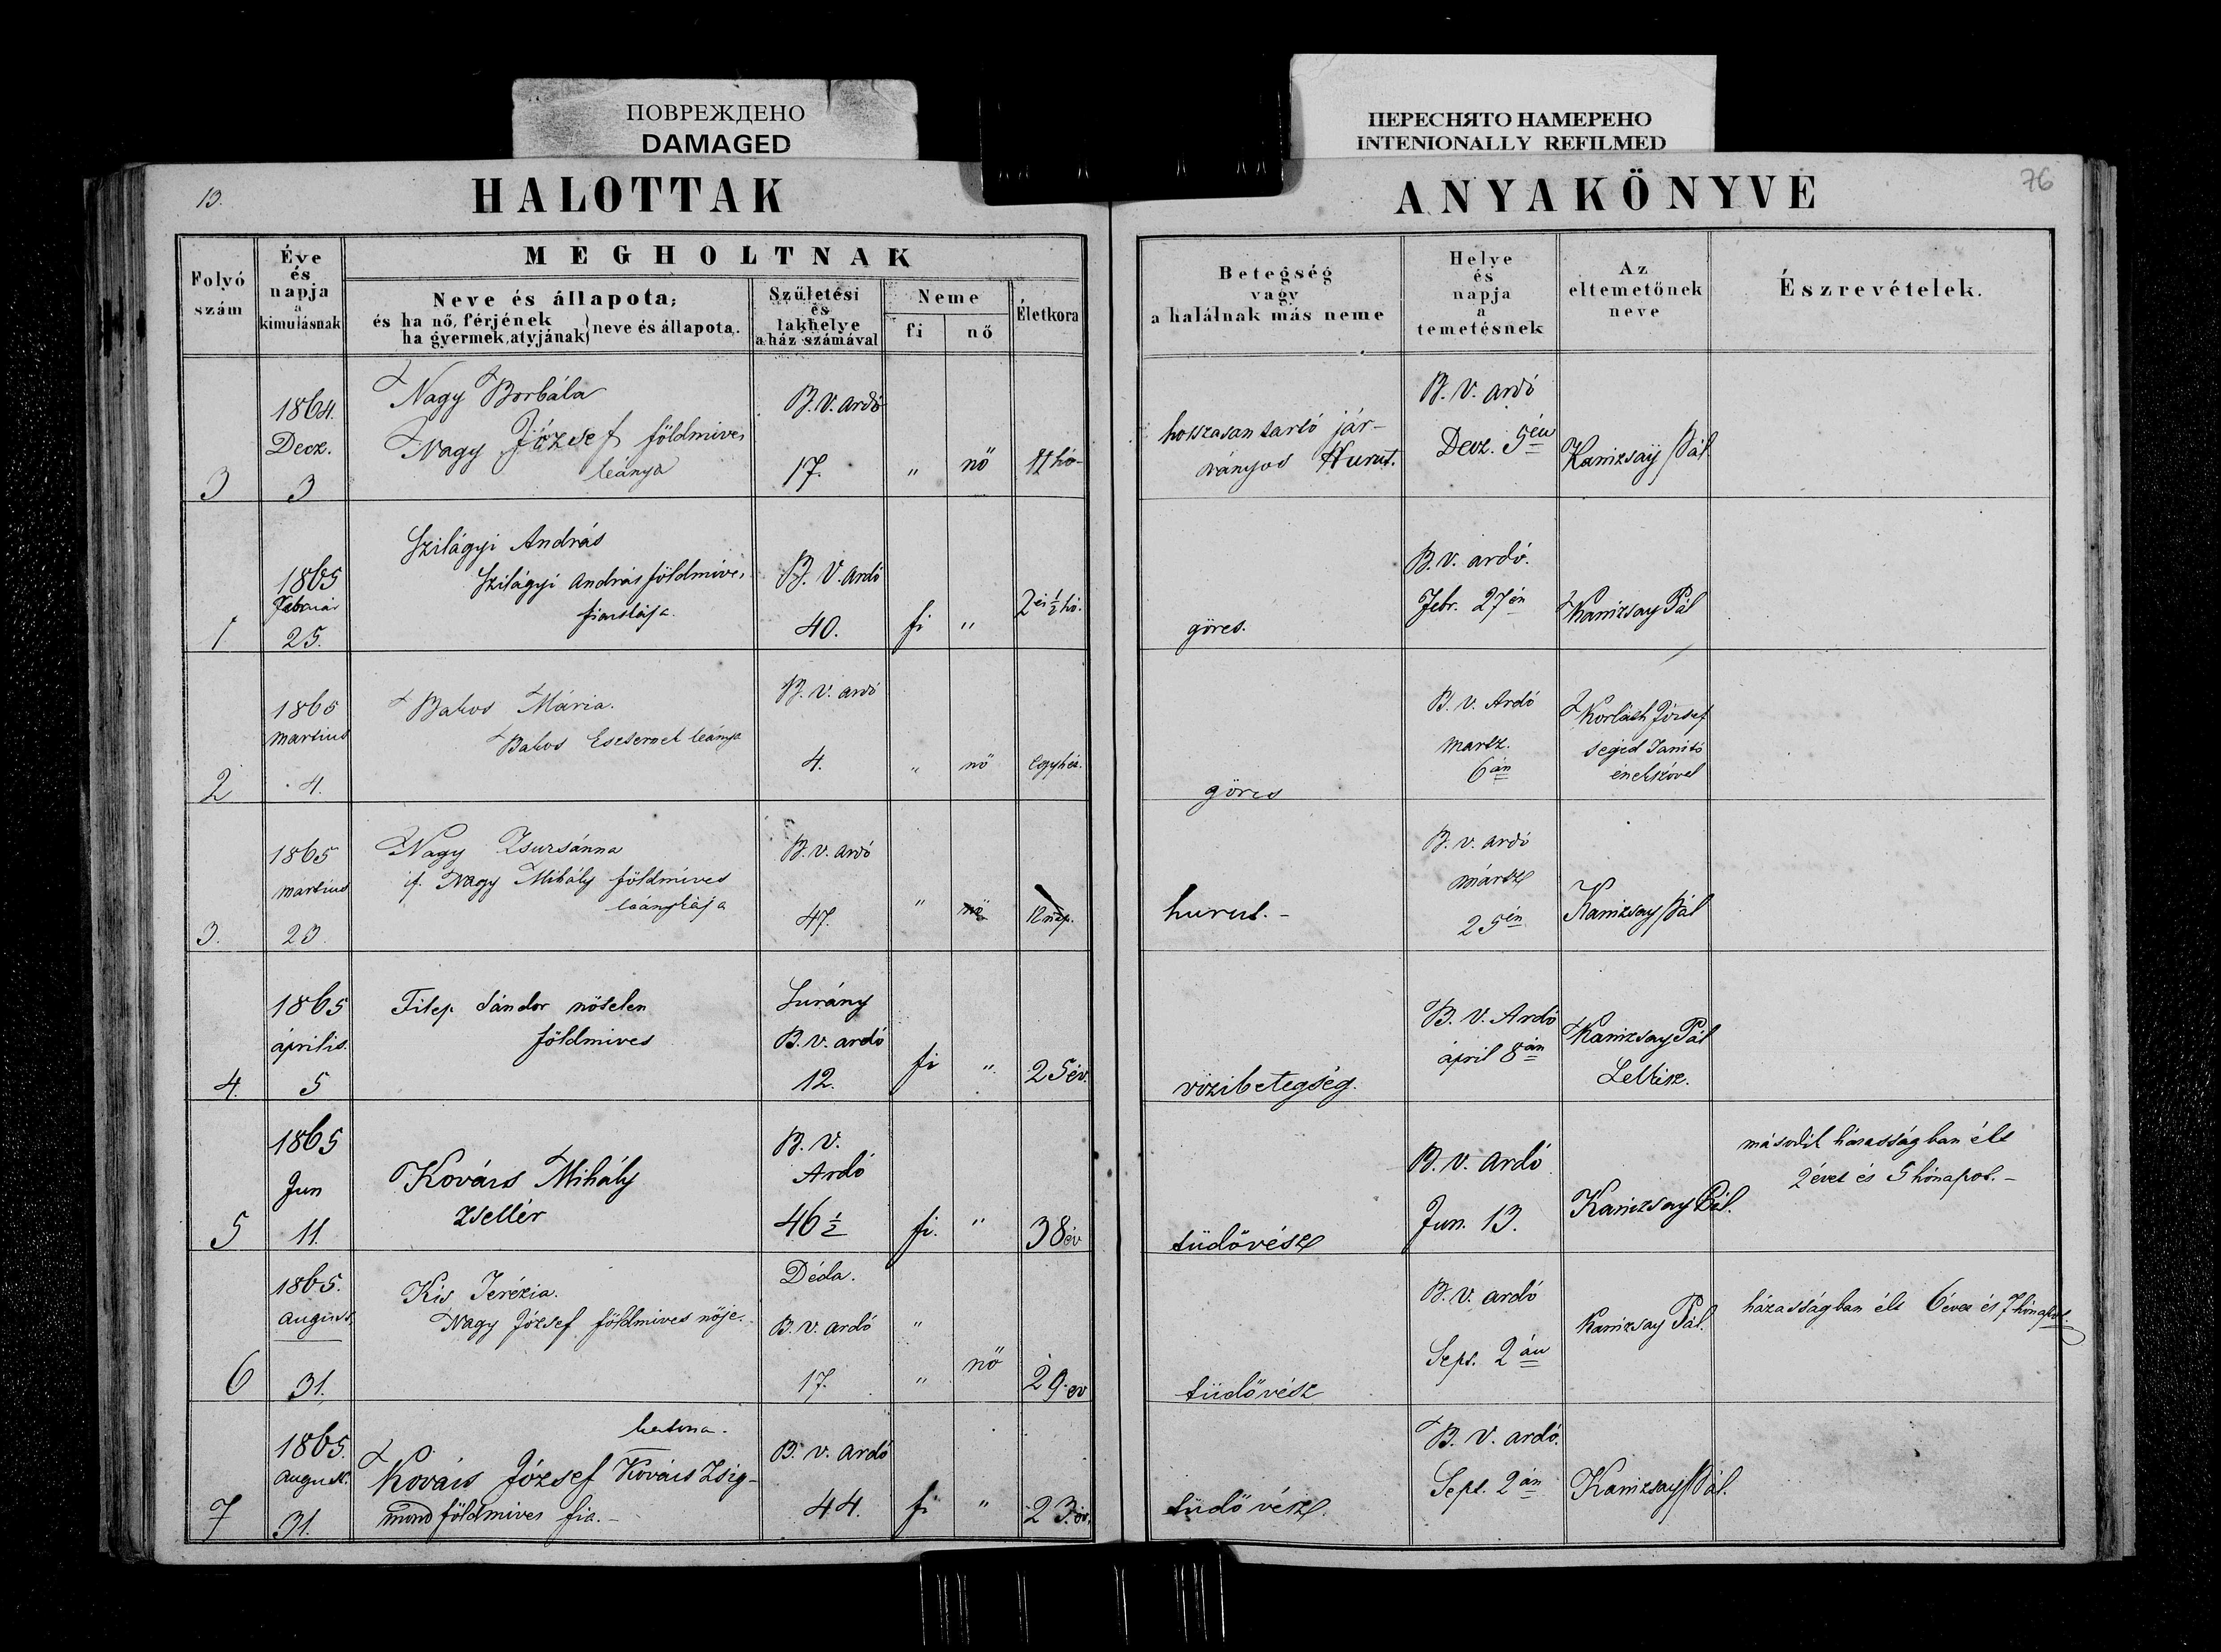 ПОВРЕЖДЕНО
DAMAGED
ПЕРЕСНЯТО НАМЕРЕНО
INTENIONALLY REFILMED
13.
HALOTTAK
ANYAKÖNYVE
76
Folyó szám
Éve és napja a kimulásnak
MEGHOLTNAK
Neve és állapota;
és ha nő, férjének
ha gyermek, atyjának} neve és állapota.
Születési és lakhelye a ház számával
Neme
fi
nő
Életkora
Betegség vagy a halálnak más neme
Helye és napja a temetésnek
Az eltemetőnek neve
Észrevételek.
3
1864.
Decz.
3
Nagy Borbála
Nagy József földmives
leánya
B. V. ardó
17.
„
nő
11 hó
hosszasan tartó jár-
ványos Hurut.
B. V. ardó
Decz. 5én
Kanizsay Pál
1
1865
Február
25.
Szilágyi András
Szilágyi András földmives
fiacskája.
B. V. ardó
40.
fi
„
2 és ½ hó.
görcs.
B. V. ardó.
Febr. 27én
Kanizsay Pál
2
1865
Martius
4.
Bakos Mária.
Bakos Eszternek leánya
B. V. ardó
4.
„
nő
görcs
B. V. Ardó
Martz.
6án
Korláth József
segéd Tanító
énekszóval
3.
1865
Martius
23
Nagy Zsuzsánna
if. Nagy Mihály földmives
leánykája
B. V. ardó
47.
„
nő
12 nap.
hurut. -
B. V. ardó
mártz
25én
Kanizsay Pál
4.
1865
április.
5
Filep Sándor nőtelen
földmives
Surány
B. V. ardó
12.
fi
„
25 év.
vízibetegség.
B. V. Ardó
ápril 8án
Kanizsay Pál
Lelkész.
5
1865
Jun
11.
Kovács Mihály
zsellér
B. V.
Ardó
46 ½
fi.
„
38 év
tüdővész
B. V. ardó
Jun. 13.
Kanizsay Pál.
második házasságban élt
2 évet és 5 hónapot. -
6
1865.
August.
31.
Kis Terézia.
Nagy József földmives nője.
Déda.
B. V. ardó
17.
„
„
nő
29. év
tüdővész
B. V. ardó
Sept. 2án
Kanizsay Pál.
házasságban élt 6 évet és 7 hónapot.
7
1865.
August.
31.
katona.
Kovács József Kovács Zsig-
mond földmives fia. -
B. V. ardó
44.
fi
„
23. év.
tüdővész.
B. V. ardó.
Sept. 2án
Kanizsay Pál.